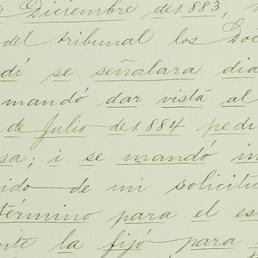 Diciembre de 1883,
del tribunal los Doc
dí se señalara dia
mandó dar vista al
de Julio de 1884 pedi
sa; i se mandó in
ido de mi solicitu
término para el es
nte la fijó para